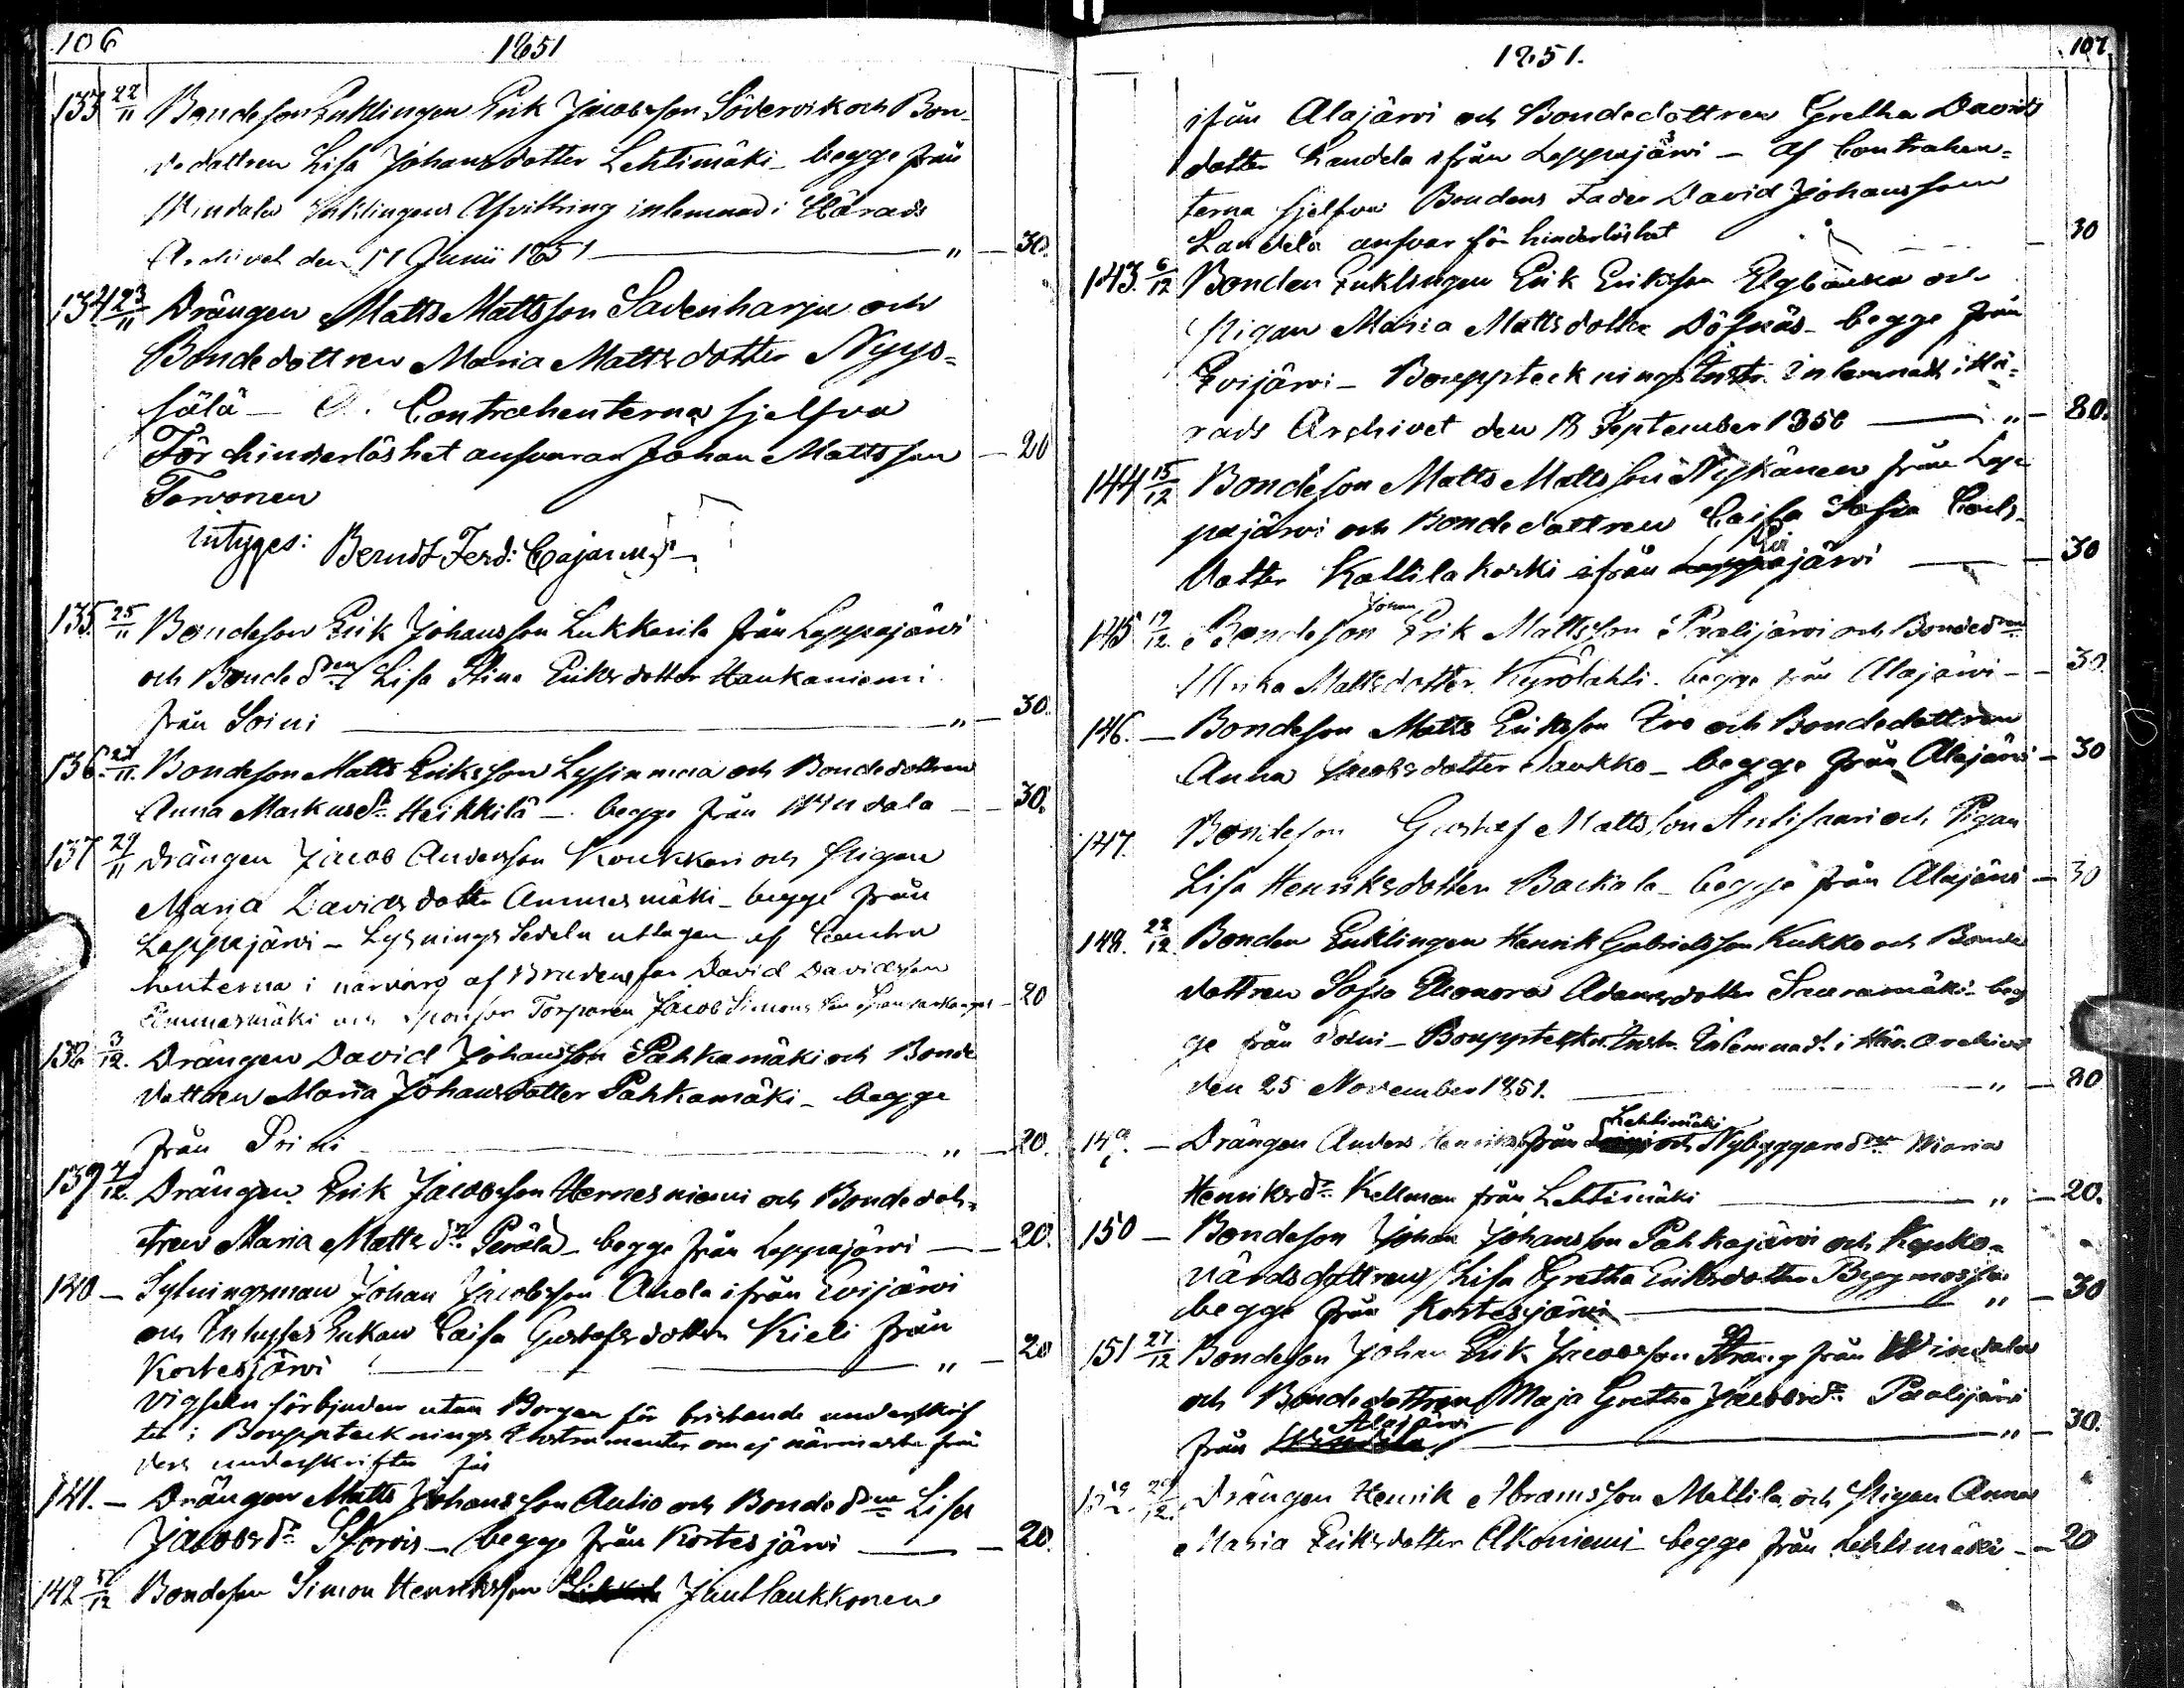 106
1851
133 22/11 Bondeson Enklingen Erik Jacobsson Södervik och Bon-
dedottren Lisa Johansdotter Lehtimäki - begge från
Windala Enklingens Afvittring inlemnad i Härads
Archivet den 11 Junii 1851 — " — 30.
134 23/11 Drängen Matts Mattsson Sadenharju och
Bondedottren Maria Mattsdotter Nyys=
sölä — Contrahenterna sjelfva
För hinderlöshet ansvarar Johan Mattsson — 20
Torvonen
intyges: Berndt Ferd: Cajanus
135. 25/11 Bondeson Erik Johansson Lukkarila från Lappajärvi
och Bondedren Lisa Stina Eriksdotter Haukaniemi
från Soini — " — 30.
136. 27/11. Bondeson Matts Eriksson Lyssinmaa och Bondedottren
Anna Markusdr Heikkilä — begge från Windala — 30.
137 29/11 Drängen Jacob Andersson Koukkari och Pigan
Maria Davidsdotter Ammesmäki - begge från
Lappajärvi - Lysnings Sedeln uttagen af Contra
henterna i närvaro af Brudens far David Davidsson
Ämmesmäki och Torparen Jacob Simonsson — 20
138 3/12. Drängen David Johansson Pahkamäki och Bonde
dottren Maria Johansdotter Pahkamäki - begge
från Soini — " — 20.
139 4/12. Drängen Erik Jacobsson Hernesniemi och Bondedot=
tren Maria Mattsdr Perälä - begge från Lappajärvi — 20.
140 — Sytningsman Johan Jacobsson Ahola ifrån Evijärvi
och Inhyses Enkan Caisa Gustafsdotter Kieli från
Kortesjärvi — " — 20
Vigseln förbjuden utan Borgen för bristande underskrif
ter i BouppteckningsInstrumenter om ej närmaste frän
ders underskrifter fås
141. — Drängen Matts Johansson Aulio och Bondedren Lisa
Jacobsdr Storvis - begge från Kortesjärvi — 20.
142 5/12 Bondeson Simon Henriksson Jauhlaukkonen
1851.
107.
ifrån Alajärvi och Bondedottren Gretha Davids
dotter Kandela ifrån Lappajärvi - af Contrahen=
terna sjelfva Brudens Fader David Johansson
Kandela ansvar för hinderlöshet — 30
143. 6/12 Bonden Enklingen Erik Eriksson Elgbacka och
Pigan Maria Mattsdotter Dösnäs - begge från
Evijärvi - BouppteckningsInstr. Inlemnadt i Hä=
rads Archivet den 18 September 1850 — " — 80.
144 15/12 Bondeson Matts Mattsson Nykänen från Lap
pajärvi och Bondedottren Caisa Sofia Carls-
dotter Kallilakoski ifrån Evijärvi — 30
145 19/12. Bondeson Johan Erik Mattsson Paalijärvi och Bondedren
Ulrika Mattsdotter Kyrölahti - begge från Alajärvi — 30.
146. — Bondeson Matts Eriksson Iso och Bondedottren
Anna Jacobsdotter Saukko - begge från Alajärvi — 30
147. Bondeson Gustaf Mattsson Antisaari och Pigan
Lisa Henriksdotter Backala - begge från Alajärvi — 30
148. 22/12. Bonden Enklingen Henrik Gabrielsson Kukko och Bonde
dottren Sofia Eleonora Adamsdotter Sauramäki - beg
ge från Soini - Boupptekn. Instr. Inlemnadt i Här. Archivet
den 25 November 1851. — " — 80
149. — Drängen Anders Henriks från Lehtimäki och Nybyggaredren Maria
Henriksdr Kellman från Lehtimäki — " — 20.
150 — Bondeson Johan Johansson Pahkajärvi och Kyrko-
värdsdottren Lisa Gretha Eriksdotter Byggmossa
begge från Kortesjärvi — " — 30
151 27/12 Bondeson Johan Erik Jacobsson Strang från Windala
och Bondedottren Maja Gretha Jacobsdr Paalijärvi
från Alajärvi — " — 30.
152. 29/12. Drängen Henrik Abramsson Mattila och Pigan Anna
Maria Eriksdotter Akoniemi - begge från Lehtimäki — 20